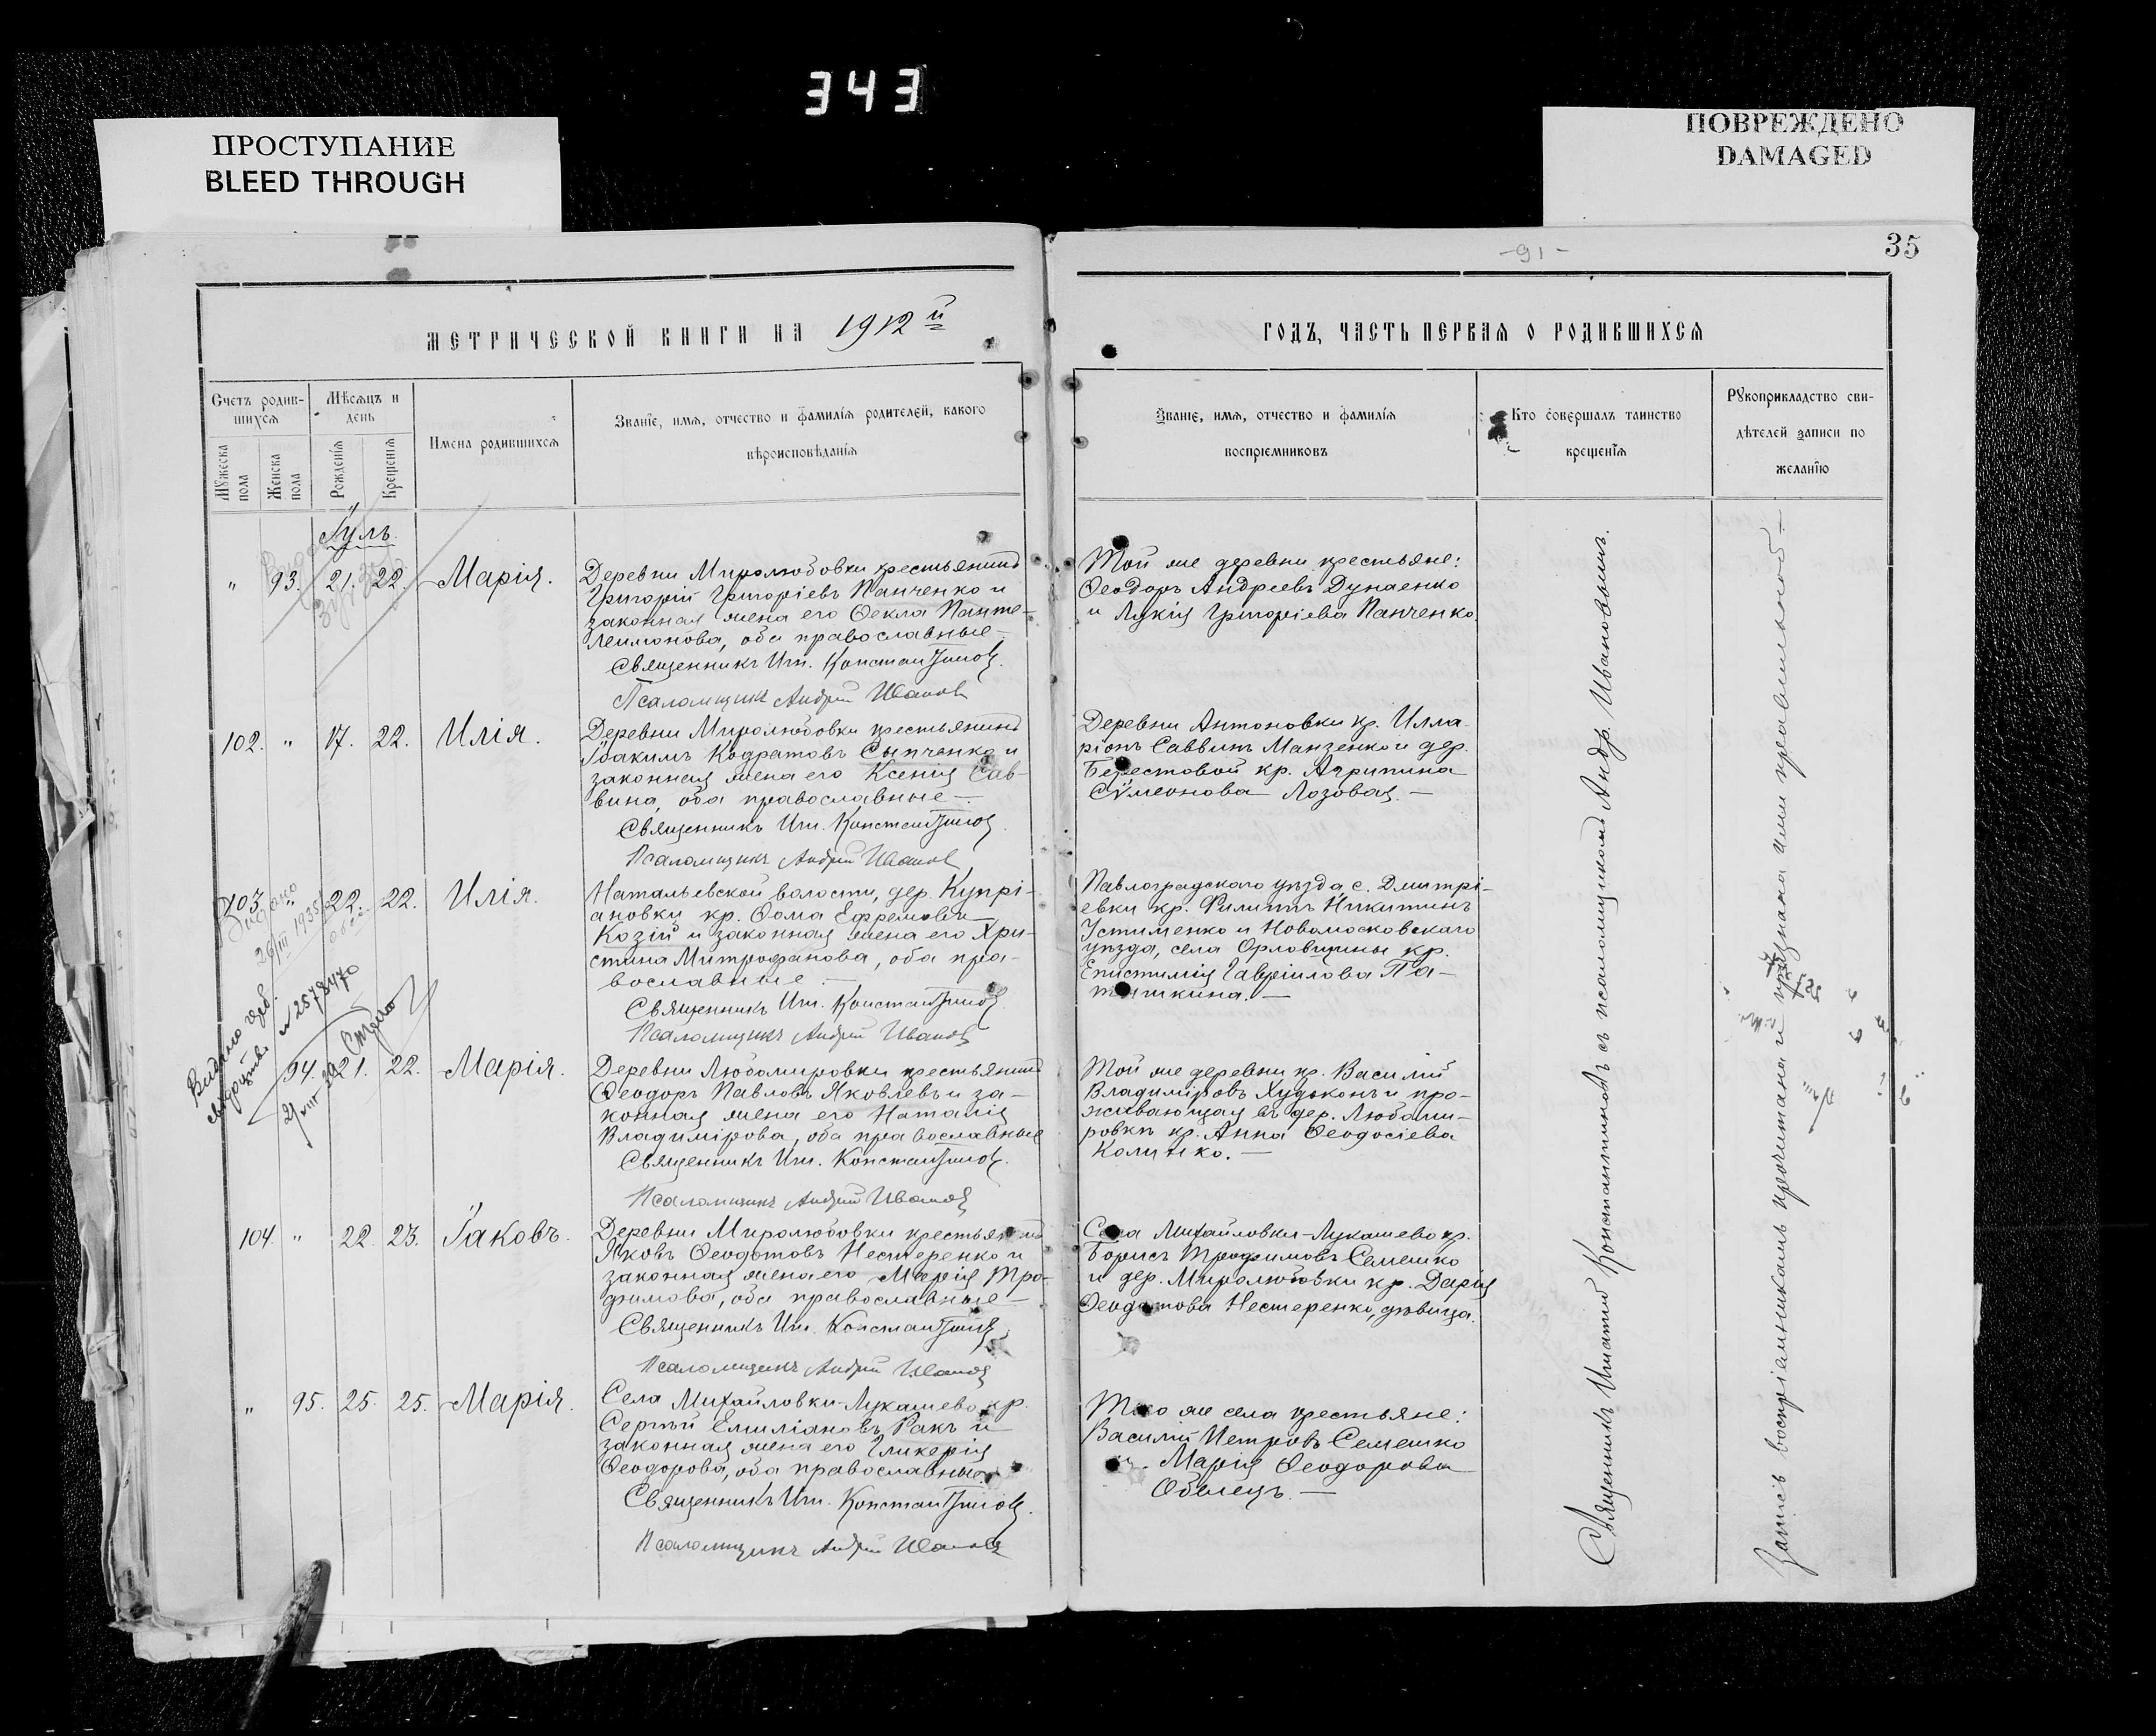 343
ПРОСТУПАНИЕ
BLEED THROUGH
ПОВРЕЖДЕНО
DAMAGED
-91-
35
МЕТРИЧЕСКОЙ КНИГИ НА 1912й
ГОДЪ, ЧАСТЬ ПЕРВАЯ О РОДИВШИХСЯ
Счетъ родив-
шихся
Мѣсяцъ и
день
Мужеска пола
Женска пола
Рожденія
Крещенія
Имена родившихся
Званіе, имя, отчество и фамилія родителей, какого
вѣроисповѣданія
Званіе, имя, отчество и фамилія
воспріемниковъ
Кто совершалъ таинство
крещенія
Рукоприкладство сви-
дѣтелей записи по
желанію
Іуль.
" 93. 21. 22. Марія.
Деревни Миролюбовки крестьянинъ
Григорій Григоріевъ Панченко и
законная жена его Ѳекла Панте-
леимонова, оба православные
Священникъ Иги. Константиновъ.
Псаломщикъ Андрей Ивановъ
Той же деревни крестьяне:
Ѳеодоръ Андреевъ Дунаенко
и Лукія Григоріева Панченко.
102. " 17. 22. Илія.
Деревни Миролюбовки крестьянинъ
Іоакимъ Кодратовъ Сыпченко и
законная жена его Ксенія Сав-
вина, оба православные —
Священникъ Иги. Константиновъ.
Псаломщикъ Андрей Ивановъ
Деревни Антоновки кр. Илла-
ріонъ Саввинъ Манзенко и дер.
Берестовой кр. Агрипина
Сѵмеонова Лозовая. —
103. " 22. 22. Илія.
Натальевской волости, дер. Купрі-
ановки кр. Ѳома Ефремовъ
Козій и законная жена его Хри-
стина Митрофанова, оба пра-
вославные. —
Священникъ Иги. Константиновъ.
Псаломщикъ Андрей Ивановъ
Павлоградскаго уѣзда с. Дмитрі-
евки кр. Филиппъ Никитинъ
Устименко и Новомосковскаго
уѣзда, села Орловщины кр.
Епистимія Гавріилова
Видано
26/III 1935
Видано
№ 2578470
94. 21. 22. Марія.
Деревни Любомировки крестьянинъ
Ѳеодоръ Павловъ Яковлевъ и за-
конная жена его Наталія
Владимірова, оба православные
Священникъ Иги. Константиновъ.
Псаломщикъ Андрей Ивановъ
Той же деревни кр. Василій
Владиміровъ Худоконь и про-
живающая въ дер. Любоми-
ровкѣ кр. Анна Ѳеодосіева
Калинко. —
104 " 22. 23. Іаковъ.
Деревни Миролюбовки крестьянинъ
Яковъ Ѳеодотовъ Нестеренко и
законная жена его Марія Тро-
фимова, оба православные —
Священникъ Иги. Константиновъ.
Псаломщикъ Андрей Ивановъ
Села Михайловки-Лукашево кр.
Борисъ Трофимовъ Семешко
и дер. Миролюбовки кр. Дарія
Ѳеодотова Нестеренко, дѣвица.
" 95. 25. 25. Марія.
Села Михайловки-Лукашево кр.
Сергѣй Емиліановъ Ракъ и
законная жена его Гликерія
Ѳеодорова, оба православные.
Священникъ Иги. Константиновъ.
Псаломщикъ Андрей Ивановъ
Того же села крестьяне:
Василій Петровъ Семешко
и Марія Ѳеодорова
Обмецъ. —
Священникъ Игнатій Константиновъ съ псаломщикомъ Андр. Ивановымъ.
Запись воспріемникамъ прочитана и признана ими правильной —